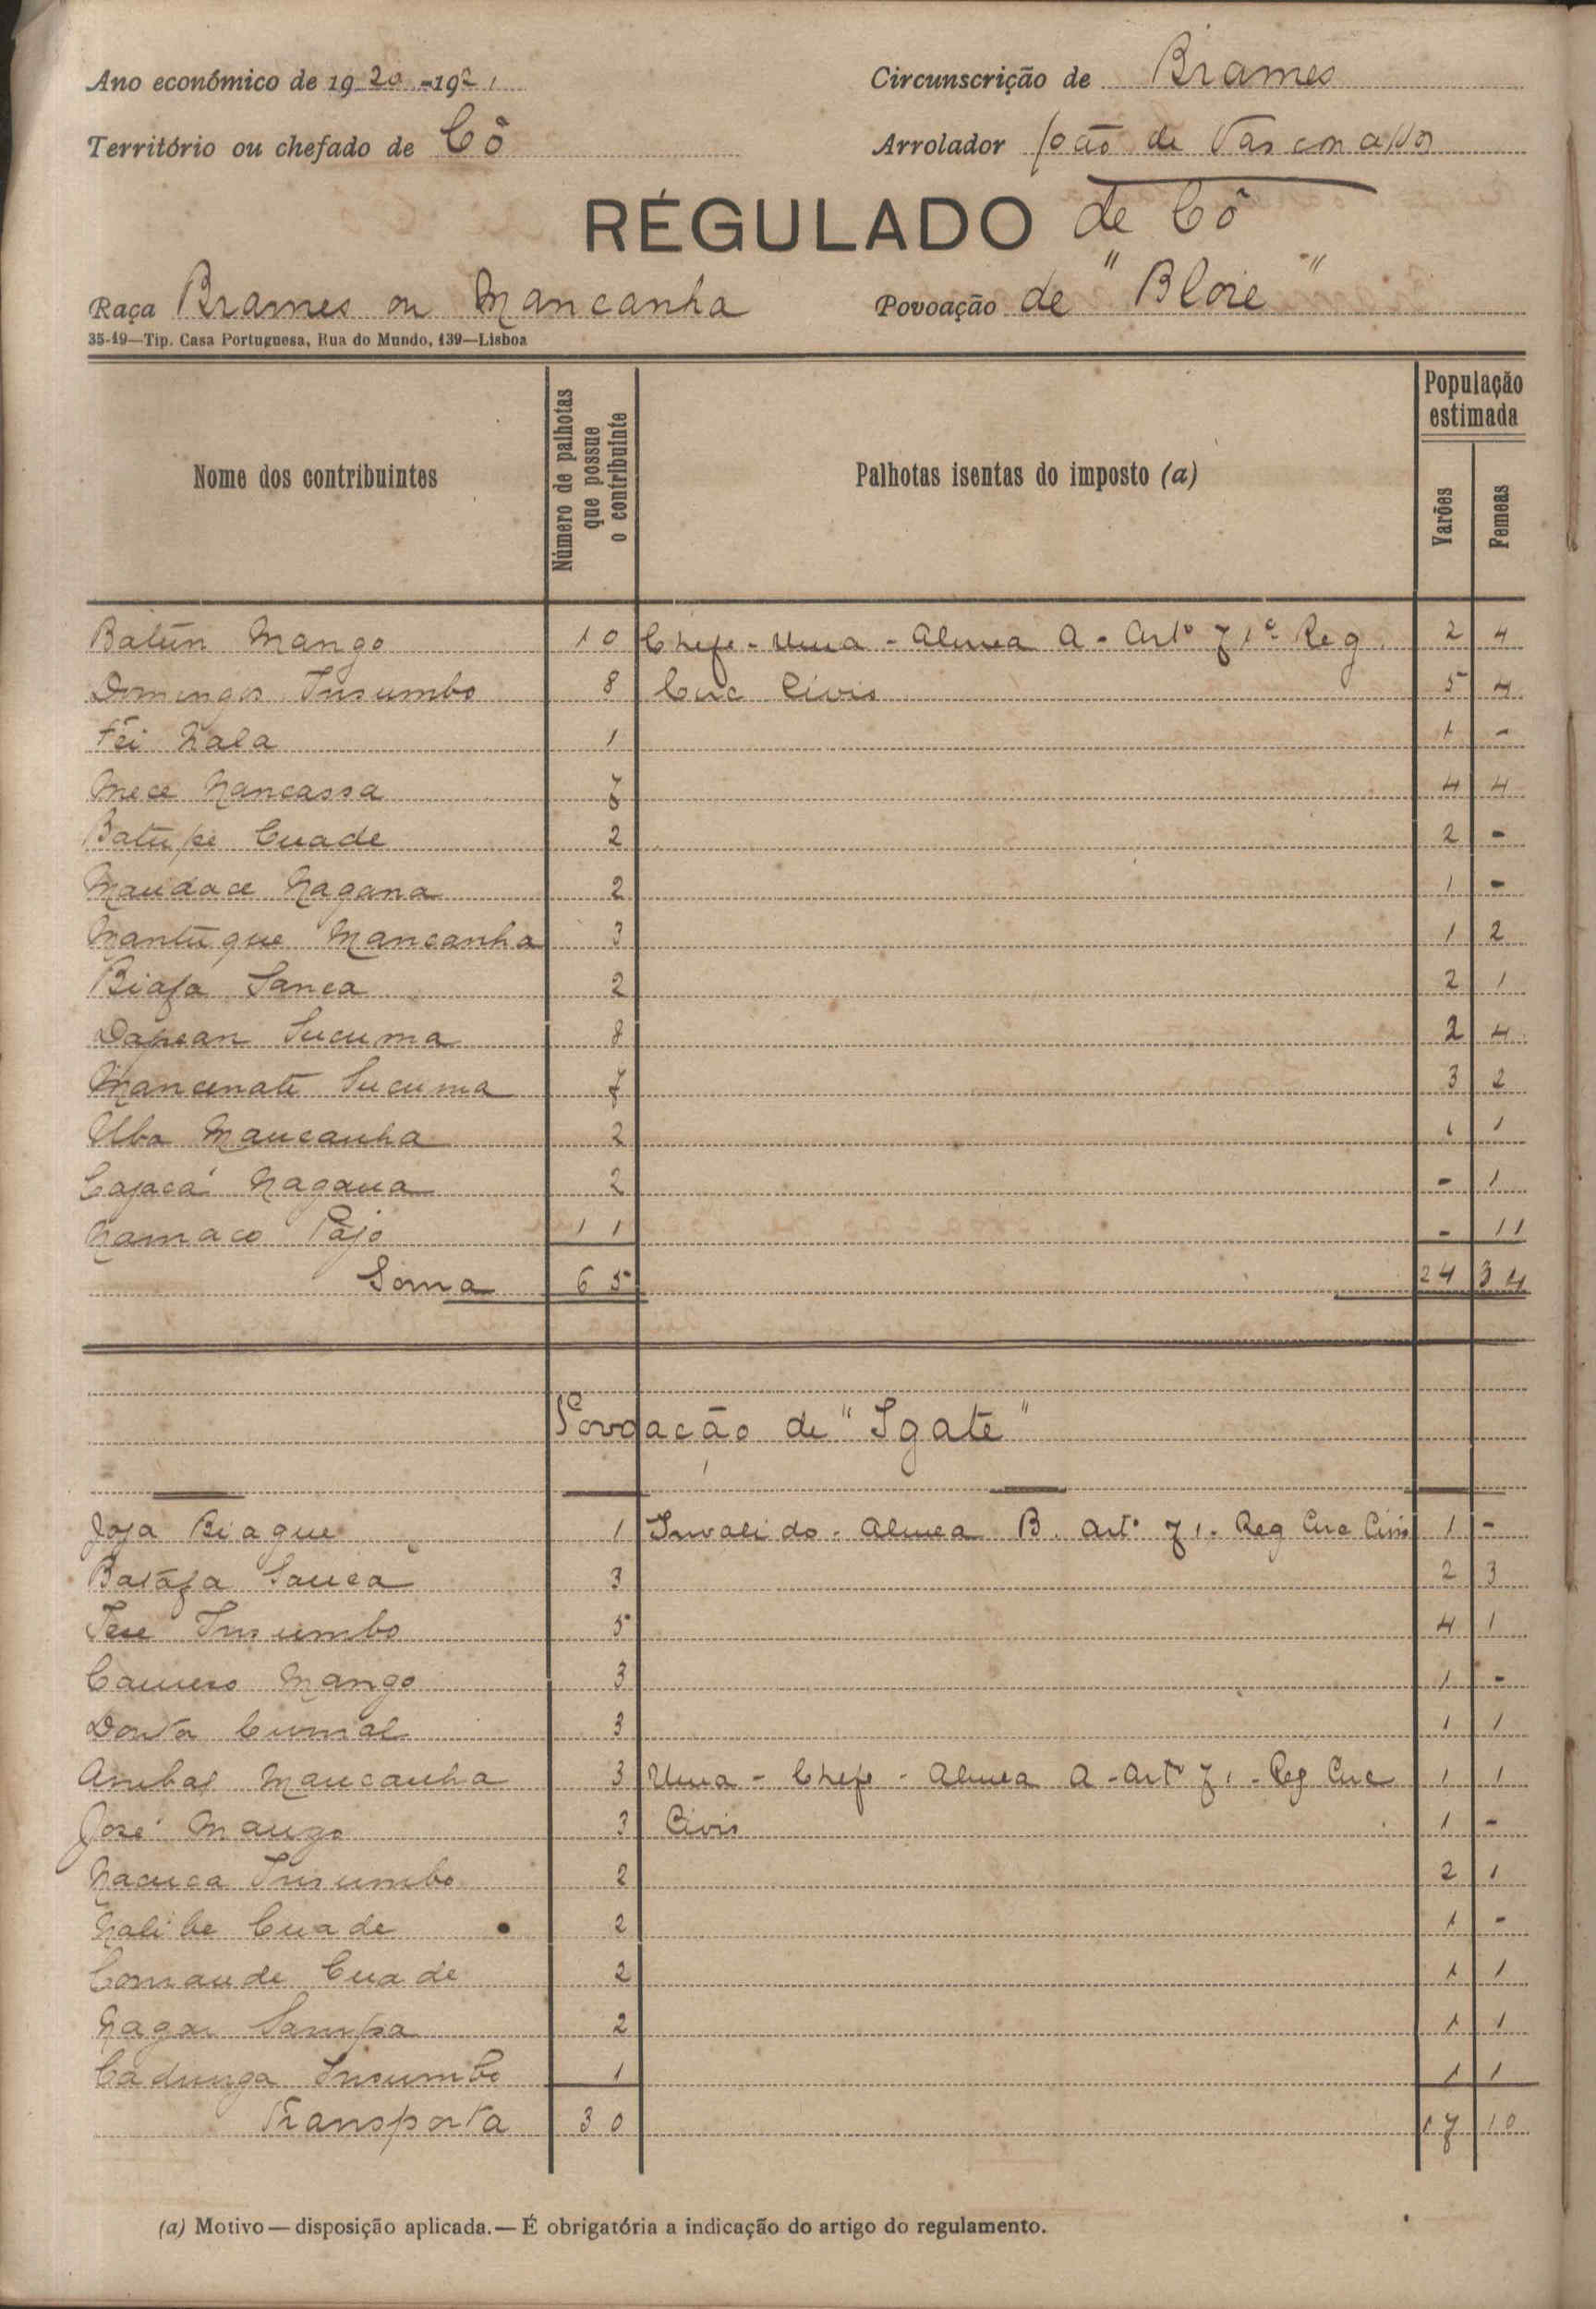 Ano económico de 1920-1921
Circunscrição de Brames
Território ou chefado de Cô
Arrolador João de Vasconcellos
RÉGULADO de Cô
Raça Brames ou Mancanha
Povoação de "Bloie"
35-19—Tip. Casa Portuguesa, Rua do Mundo, 139—Lisboa
Nome dos contribuintes
Número de palhotas que possue o contribuinte
Palhotas isentas do imposto (a)
População estimada
Varões
Femeas
Batūn Mango 10 Chefe - Uma - Alinea A - Artº 71º Reg. 2 4
Domingos Insumbo 8 Circ Civis 5 4
Féi Nala 1 1 -
Mece Nancassa 7 4 4
Batūpe Cuade 2 2 -
Maudace Nagana 2 1 -
Nantūque Mancanha 3 1 2
Biafa Sanca 2 2 1
Sucuma 8 2 4
Mancenate Sucuma 7 3 2
Uba Mancanha 2 1 1
Cajacá Nagana 2 - 1
Namaco Pajo 11 - 11
Soma 65 24 34
Povoação de "Igate"
Joja Biague 1 Invalido - Alinea B. Artº 71 - Reg Circ Civis 1 -
Batáfa Sanca 3 2 3
Insumbo 5 4 1
Mango 3 1 -
Cumal 3 1 1
Anibal Mancanha 3 Uma - Chefe - Alinea A - Artº 71 - Reg Circ 1 1
José Mango 3 Civis 1 -
Nacuca Insumbo 2 2 1
Nalibe Cuade 2 1 -
Comande Cuade 2 1 1
Nagai Sampa 2 1 1
Cadunga Insumbo 1 1 1
Transporta 30 17 10
(a) Motivo—disposição aplicada.—É obrigatória a indicação do artigo do regulamento.